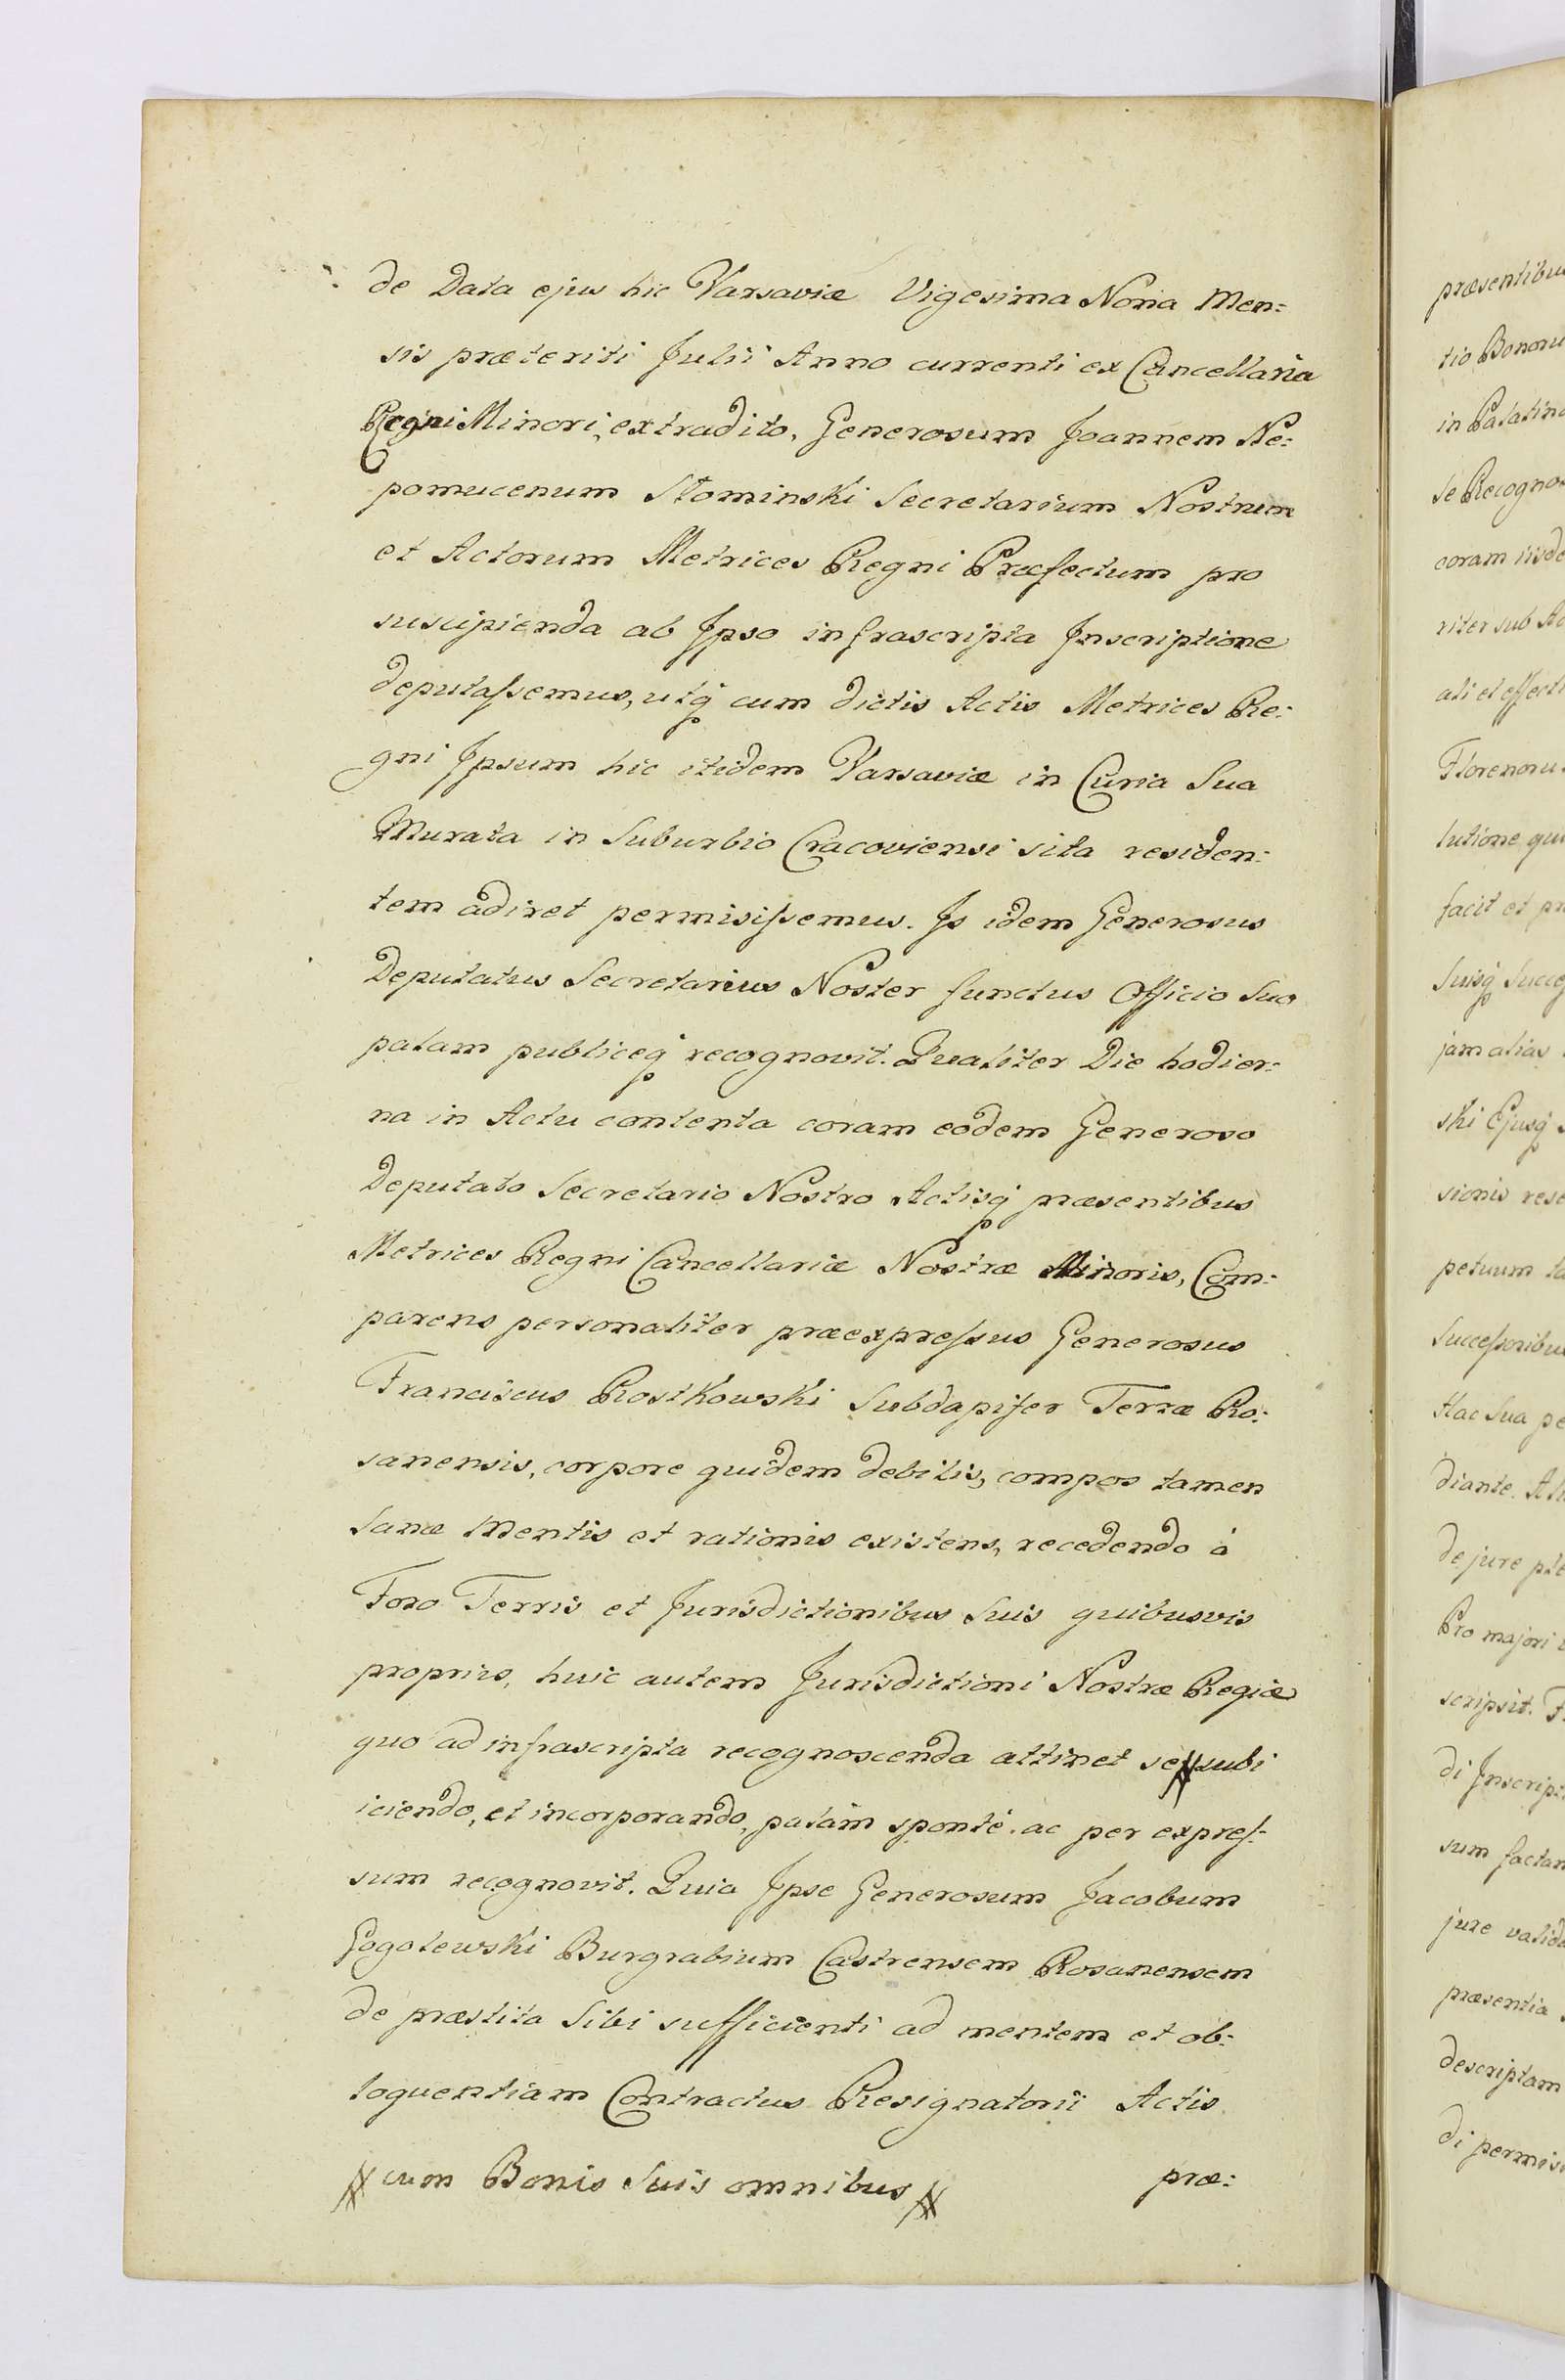 de Data ejus hic Varsaviæ Vigesima Nona Men:
sis præteriti Julii Anno currenti ex Cancellaria
Regni Minori, extradito, Generosum Joannem Ne:
pomucenum Słominski Secretarium Nostrum
et Actorum Metrices Regni Præfectum pro
suscipienda ab Ipso infrascripta Inscriptione
deputaſsemus, utq́ cum dictis Actis Metrices Re:
gni Ipsum hic itidem Varsaviæ in Curia Sua
Murata in Suburbio Cracoviensi sita residen:
tem adiret permisiſsemus. Is idem Generosus
Deputatus Secretarius Noster functus Officio Suo
palam publiceq́ recognovit. Qualiter Die hodier:
na in Actu contenta coram eodem Generoso
Deputato Secretario Nostro Actisq́ præsentibus
Metrices Regni Cancellariæ Nostræ Minoris, Com:
parens personaliter præexpreſsus Generosus
Franciscus Rostkowski Subdapifer Terræ Ro:
sanensis, corpore quidem debilis, compos tamen
Sanæ Mentis et rationis existens, recedendo à
Foro Terris et Jurisdictionibus Suis quibusvis
propriis, huic autem Jurisdictioni Nostræ Regiæ
quo ad infrascripta recognoscenda attinet se # subi
iciendo, et incorporando, palam sponte. ac per expreſ:
sum recognovit. Quia Ipse Generosum Jacobum
Gogolewski Burgrabium Castrensem Rosanensem
de præstita Sibi sufficienti ad mentem et ob:
loquentiam Contractus Resignatorii Actis
# cum Bonis Suis omnibus # præ:
præsentibus
tio Bonoru
in Palatin
se Recogno
coram iisde
riter sub Ac
ali et effecti
Florenoru
lutione qu
facit et pr
Suisq́ Succeſ
jam alias
ski Ejusq́
sionis rese
petuum
Succeſsoribu
Hac Sua pe
diante.
de jure ple
Pro majori
scripsit. F
di Inscript
sum factam
jure valid
præsentia
descriptam
di permis